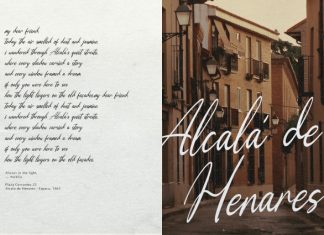 my dear friend
Today the air smelled of dust and jasmine
i wandered through Alcalá's quiet streets
where every shadow carried a story
and every window framed a dream
if only you were here to see
how the light lingers on the old facades my dear friend
Today the air smelled of dust and jasmine
i wandered through Alcalá's quiet streets
where every shadow carried a story
and every window framed a dream
if only you were here to see
how the light lingers on the old facades
Always in the light,
Plaza Cervantes 23
Alcalá de Henares - España, 1963
Alcalá de
Henares